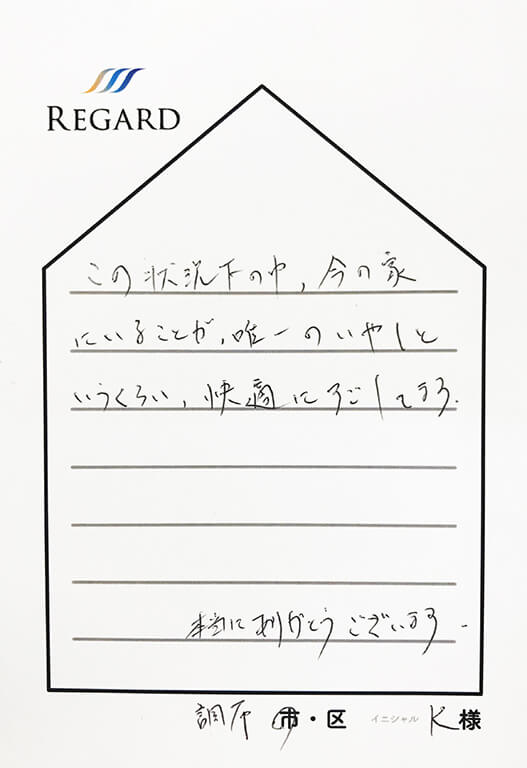 REGARD
この状況下の中、今の家
にいることが、唯一のいやしと
いうくらい、快適にすごしてます.
本当にありがとうございます.
調布 市・区 イニシャル K 様